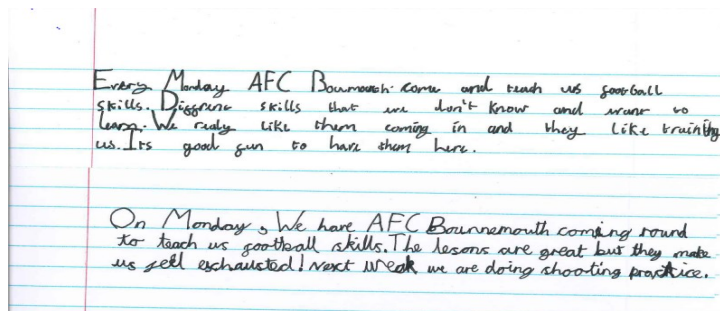 Every Monday AFC Bournmouth come and teach us football
skills. Diffrent skills that we don't know and want to
learn. We realy like them coming in and they like training
us. Its good fun to have them here.
On Monday, We have AFC Bournnemouth coming round
to teach us football skills. The lesons are great but they make
us fell eschausted! Next Week we are doing shooting practice.